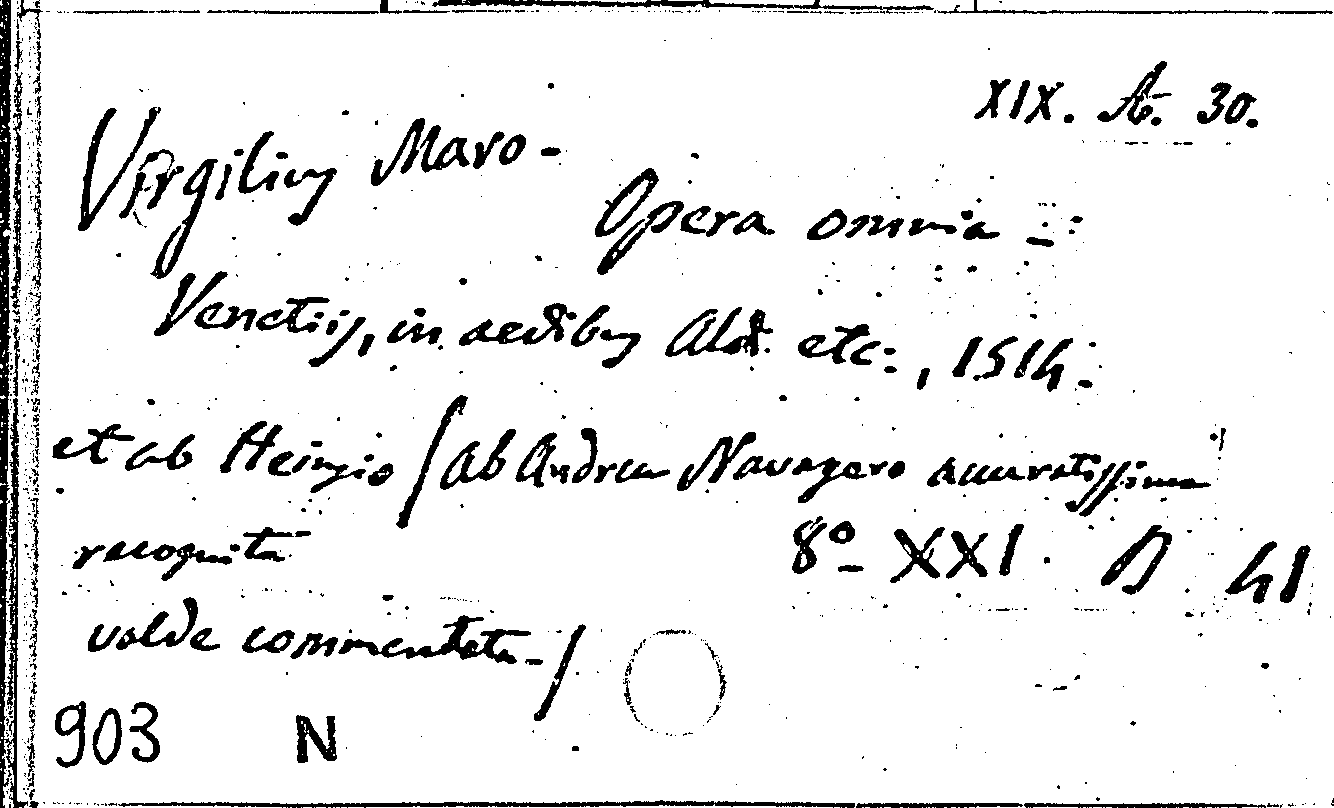 XIX. A. 30.
Virgilius Maro -
Opera omnia -
Venetiis, in aedibus Ald. etc., 1514.
et ab Heinsio / ab Andrea Navagero accuratissime
recognita
8º XXI. D 41
valde commentata - /
903 N